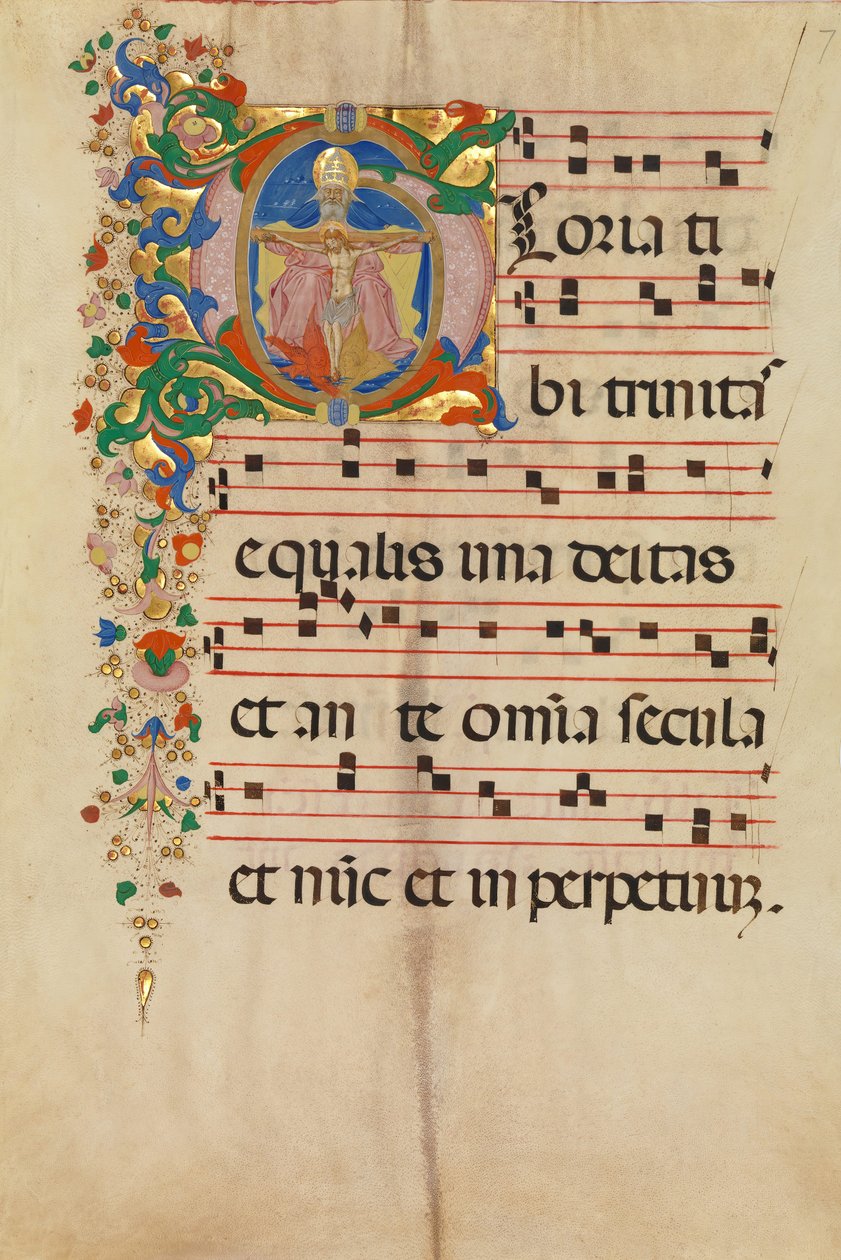 7
GLoria ti
bi trinitaˢ
equalis una deitas
et an te om̄ia secula
et nūc et in perpetuuꝫ.